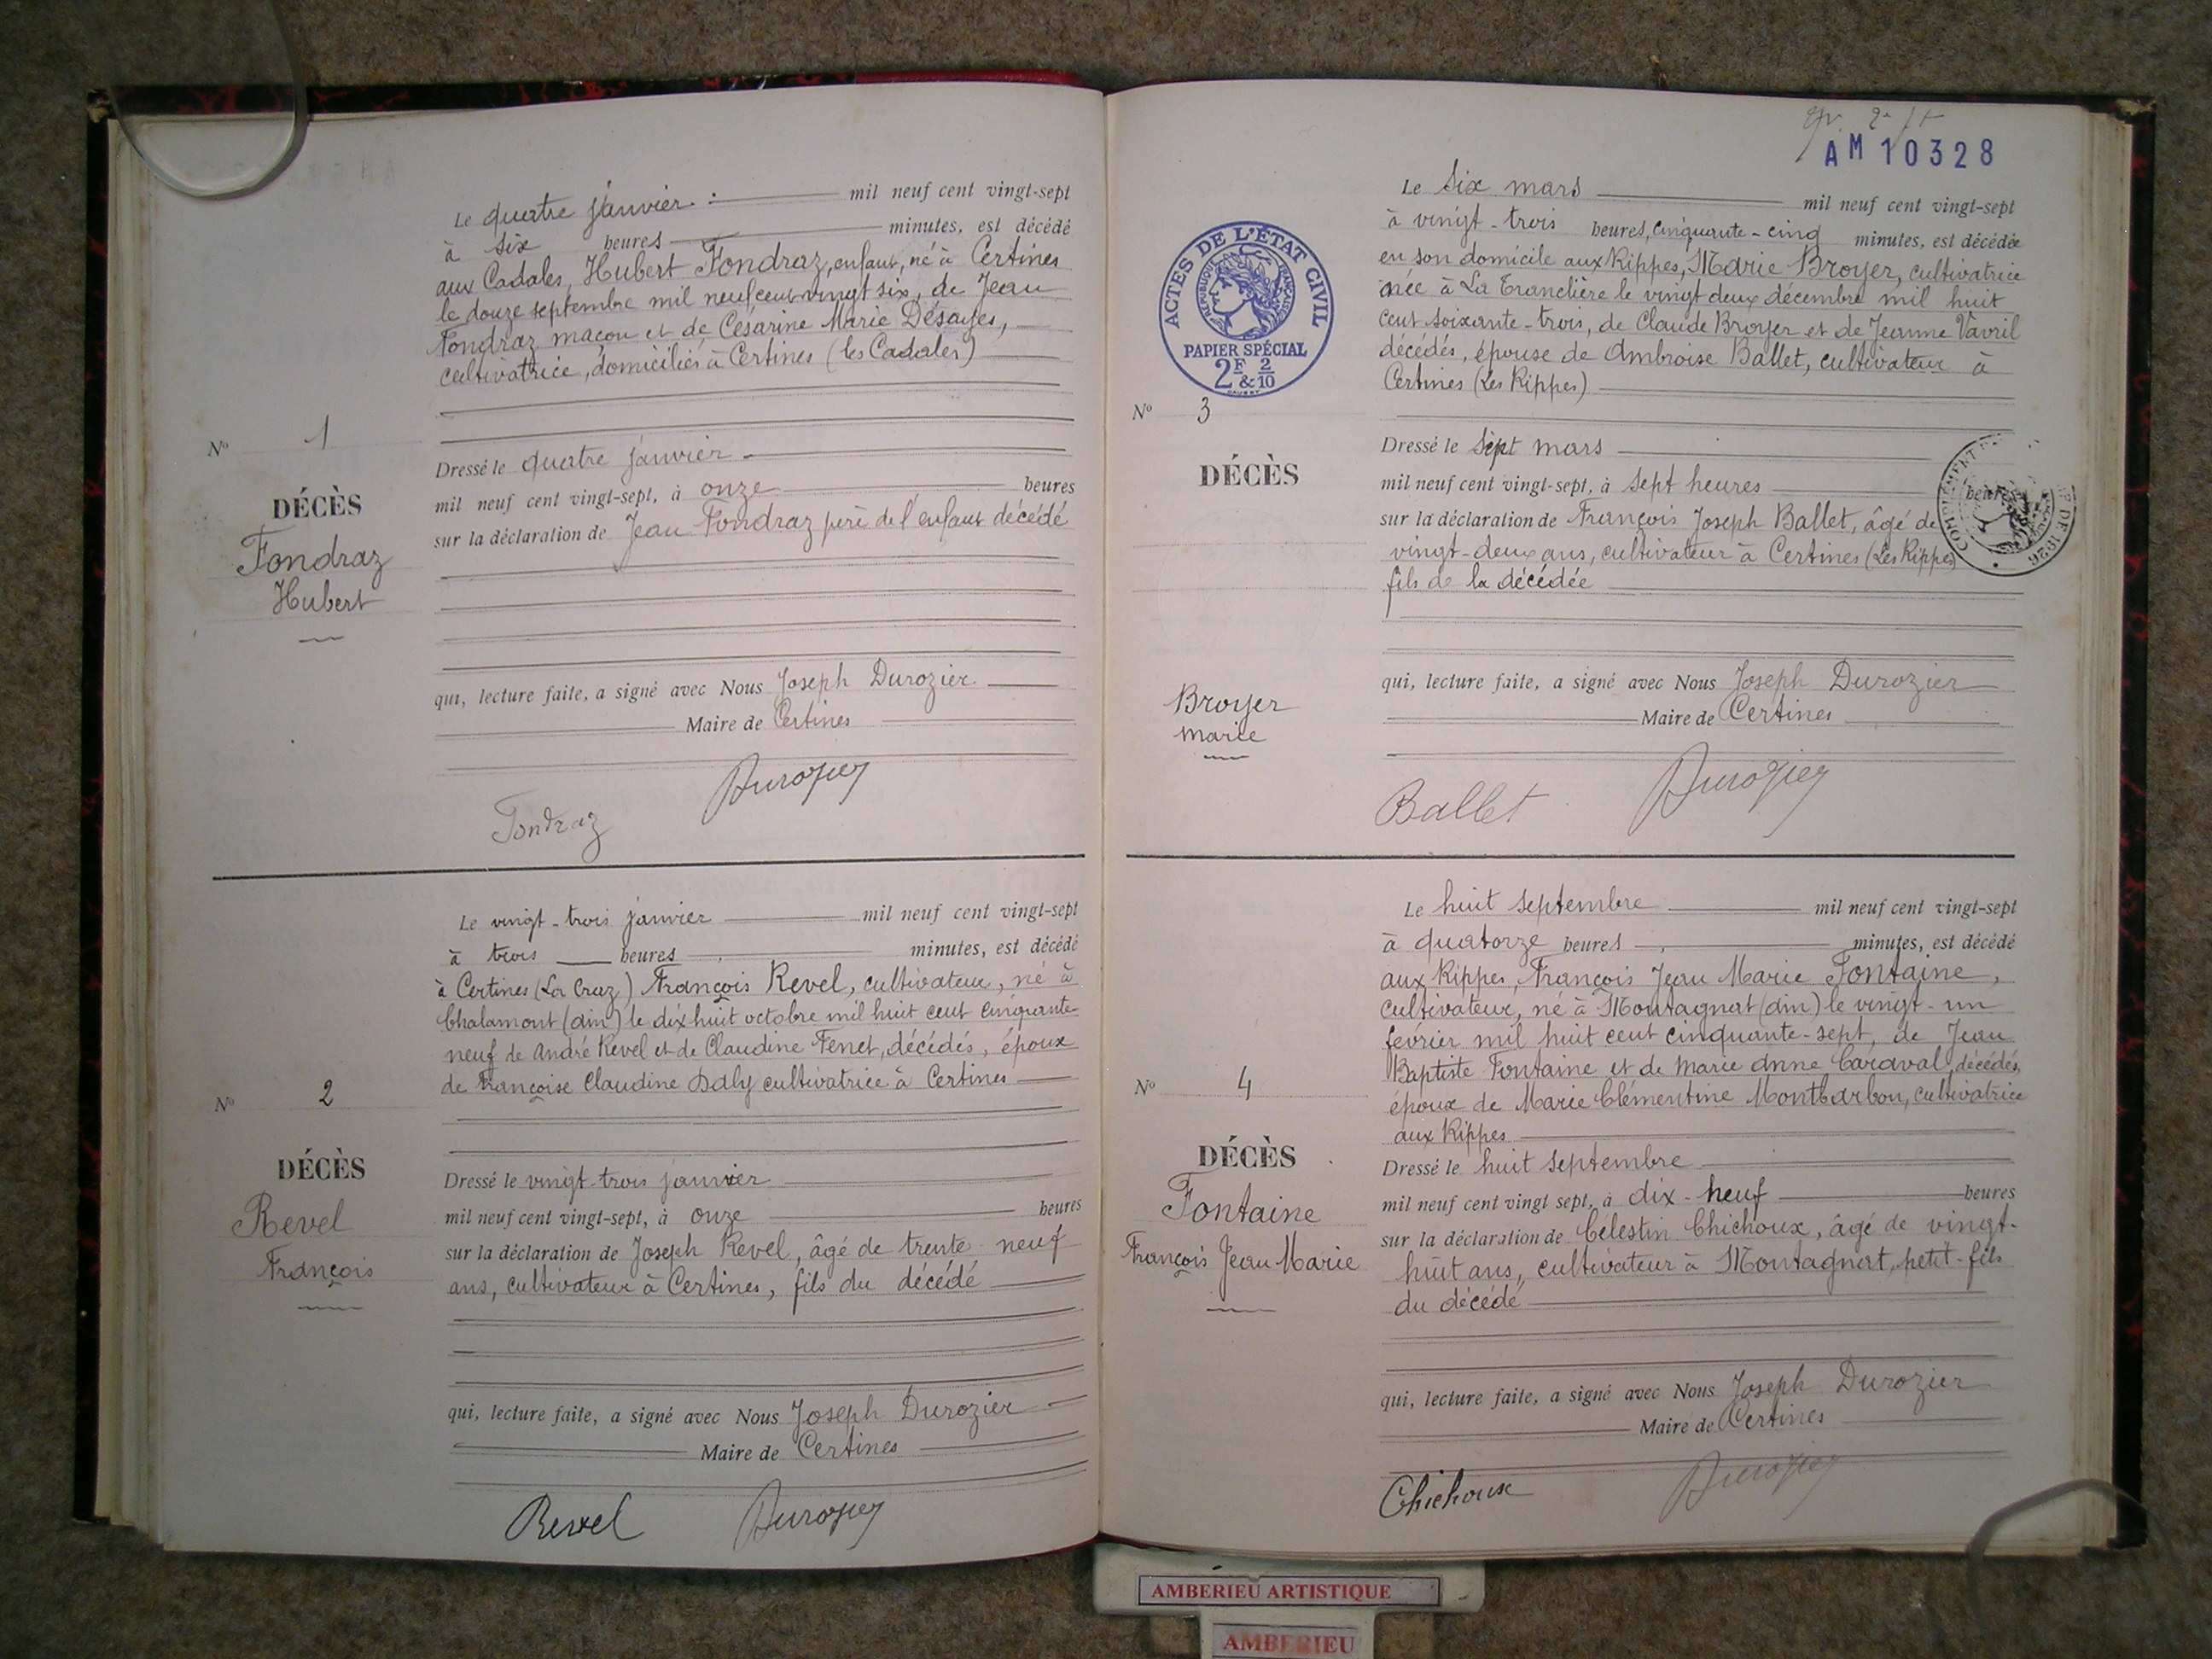 Le quatre janvier mil neuf cent vingt-sept
à six heures minutes, est décédé
aux Cadales, Hubert Fondraz, enfant, né à Certines
le douze septembre mil neuf cent vingt six, de Jean
Fondraz maçon et de Césarine Marie Désayes,
cultivatrice, domiciliés à Certines (les Cadales)
N° 1
DÉCÈS
Fondraz
Hubert
Dressé le quatre janvier
mil neuf cent vingt-sept, à onze heures
sur la déclaration de Jean Fondraz père de l'enfant décédé
qui, lecture faite, a signé avec Nous Joseph Durozier
Maire de Certines
Fondraz Durozier
Le vingt-trois janvier mil neuf cent vingt-sept
à trois heures minutes, est décédé
à Certines (La Craz) François Revel, cultivateur, né à
Chalamont (Ain) le dix huit octobre mil huit cent cinquante-
neuf de André Revel et de Claudine Fenet, décédés, époux
de Françoise Claudine Daly cultivatrice à Certines
N° 2
DÉCÈS
Revel
François
Dressé le vingt-trois janvier
mil neuf cent vingt-sept, à onze heures
sur la déclaration de Joseph Revel, âgé de trente neuf
ans, cultivateur à Certines, fils du décédé
qui, lecture faite, a signé avec Nous Joseph Durozier
Maire de Certines
Revel Durozier
AM 10328
ACTES DE L'ÉTAT CIVIL
RÉPUBLIQUE FRANÇAISE
PAPIER SPÉCIAL
2F & 2/10
Le Six mars mil neuf cent vingt-sept
à vingt-trois heures, cinquante-cinq minutes, est décédée
en son domicile aux Rippes, Marie Broyer, cultivatrice
née à La Tranclière le vingt deux décembre mil huit
cent soixante-trois, de Claude Broyer et de Jeanne Vavril
décédés, épouse de Ambroise Ballet, cultivateur à
Certines (Les Rippes)
N° 3
DÉCÈS
Broyer
Marie
Dressé le Sept mars
mil neuf cent vingt-sept, à Sept heures heures
sur la déclaration de François Joseph Ballet, âgé de
vingt-deux ans, cultivateur à Certines (Les Rippes)
fils de la décédée
qui, lecture faite, a signé avec Nous Joseph Durozier
Maire de Certines
Ballet Durozier
Le huit Septembre mil neuf cent vingt-sept
à quatorze heures minutes, est décédé
aux Rippes, François Jean Marie Fontaine,
cultivateur, né à Montagnat (Ain) le vingt-un
février mil huit cent cinquante-sept, de Jean
Baptiste Fontaine et de Marie Anne Caraval, décédés,
époux de Marie Clémentine Montbarbon, cultivatrice
aux Rippes
N° 4
DÉCÈS
Fontaine
François Jean Marie
Dressé le huit Septembre
mil neuf cent vingt sept, à dix-neuf heures
sur la déclaration de Célestin Chichoux, âgé de vingt-
huit ans, cultivateur à Montagnat, petit-fils
du décédé
qui, lecture faite, a signé avec Nous Joseph Durozier
Maire de Certines
Chichoux Durozier
AMBERIEU ARTISTIQUE
AMBERIEU